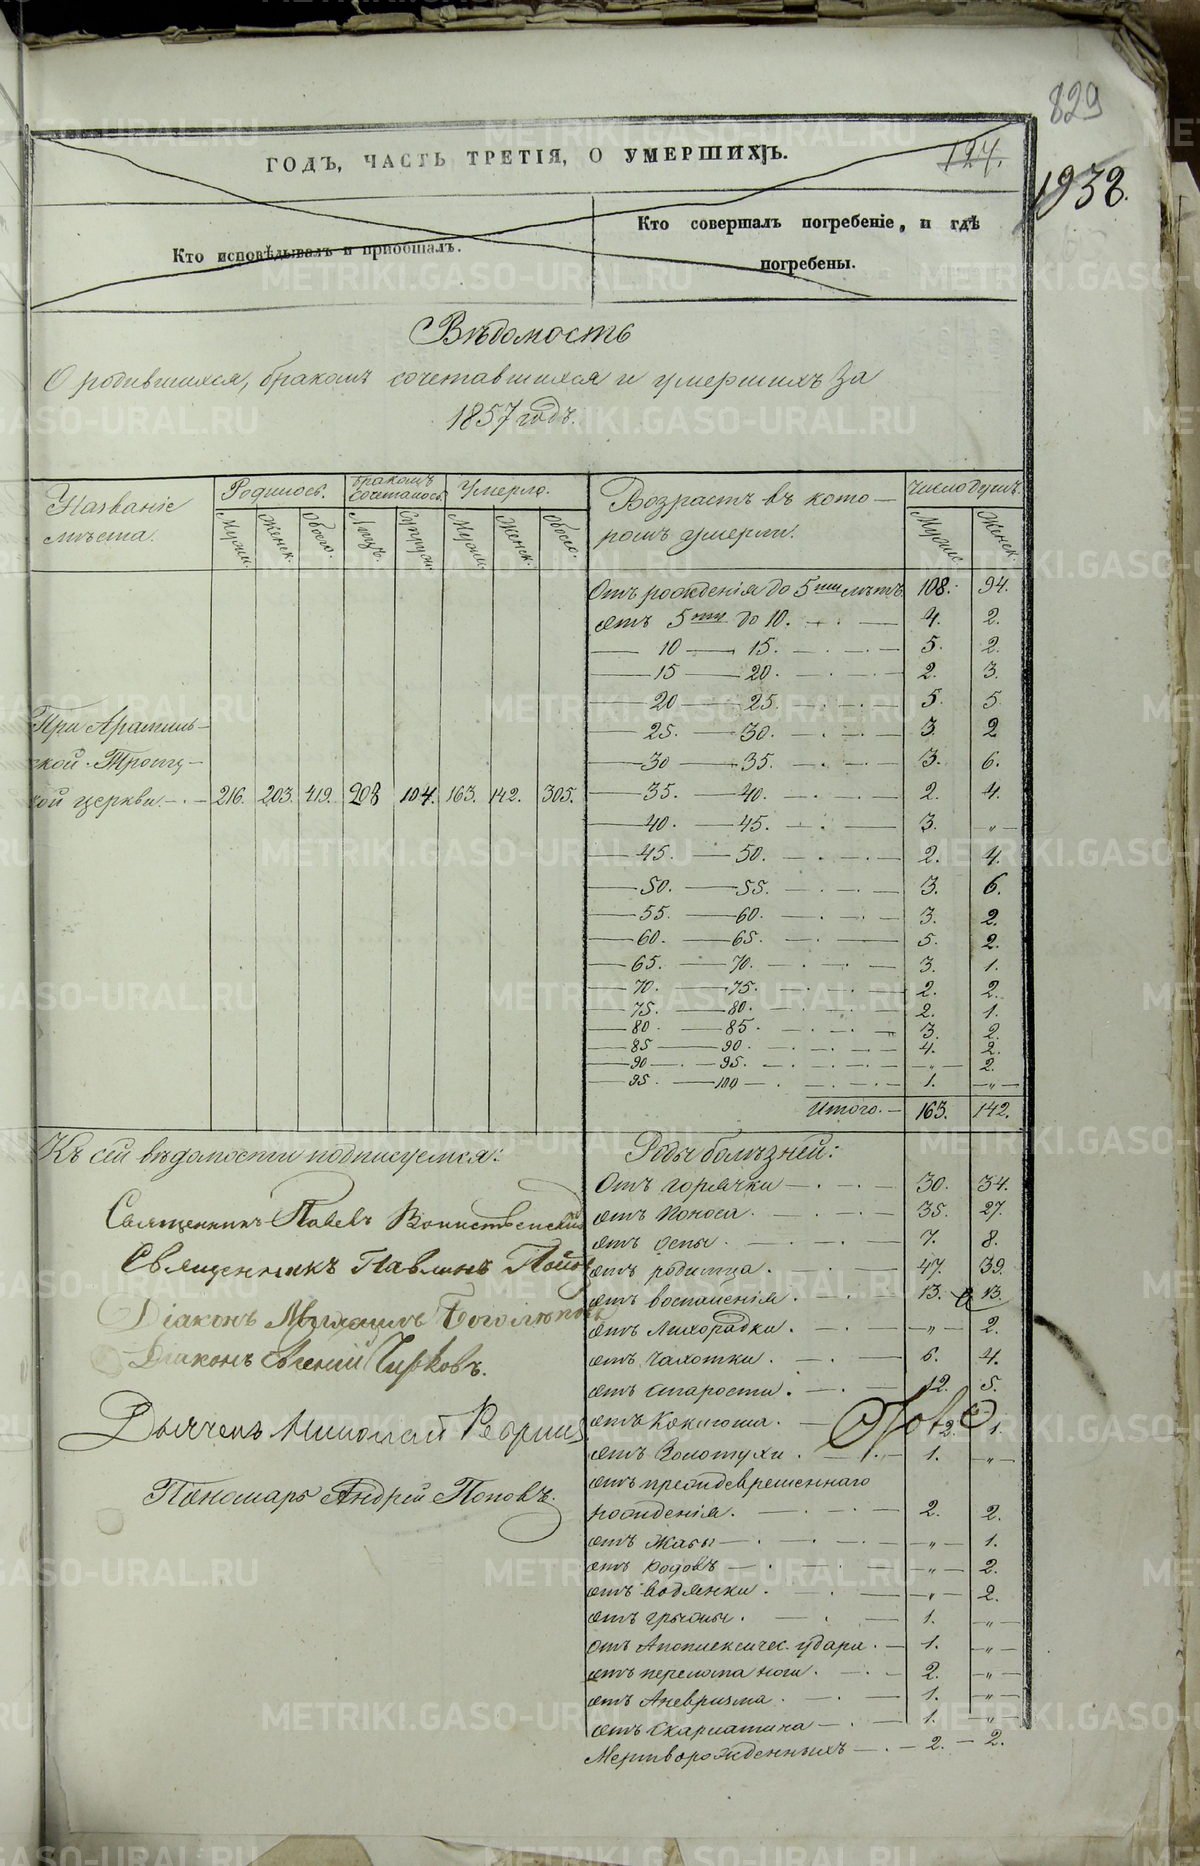 829
ГОДЪ, ЧАСТЬ ТРЕТІЯ, О УМЕРШИХЪ.
124.
1938.
Кто исповѣдывалъ и пріобщалъ.
Кто совершалъ погребеніе, и гдѣ
погребены.
Вѣдомость
О родившихся, бракомъ сочетавшихся и умершихъ за
1857 годъ.
Названіе
мѣста.
Родилось. Бракомъ сочеталось Умерло.
Мужск. Женск. Обоего. Лицъ. Супруж. Мужск. Женск. Обоего.
Возрастъ въ кото-
ромъ умерли.
Число душъ.
Мужск. Женск.
При Арамиль-
ской Троиц-
кой церкви. 216. 203. 419. 208 104. 163. 142. 305.
Отъ рожденія до 5ти лѣтъ 108. 94.
отъ 5ти до 10. 4. 2.
10 15. 5. 2.
15 20. 2. 3.
20 25. 5. 5
25. 30. 3. 2
30 35. 3. 6.
35. 40. 2. 4.
40. 45. 3. "
45. 50. 2. 4.
50. 55. 3. 6.
55. 60. 3. 2.
60. 65. 5. 2.
65. 70. 3. 1.
70. 75. 2. 2.
75. 80. 2. 1.
80. 85. 3. 2.
85 90. 4. 2.
90 95. " 2.
95. 100 1. "
Итого. 163. 142.
Къ сей вѣдомости подписуемся:
Священникъ Павелъ
Священникъ Павлинъ
Діаконъ Михаилъ
Діаконъ Евгеній
Дьячекъ Николай
Пономарь Андрей Поповъ.
Роды болѣзней:
Отъ горячки 30. 34.
отъ поноса 35. 27.
отъ оспы. 7. 8.
отъ родимца. 47. 39.
отъ воспаленія. 13. 13.
отъ лихорадки. " 2.
отъ чахотки. 6. 4.
отъ старости. 12. 5.
отъ коклюша. 2. 1.
отъ золотухи. 1. "
отъ преждевременнаго
рожденія. 2. 2.
отъ жабы " 1.
отъ родовъ " 2.
отъ водянки. " 2.
отъ грыжи. 1. "
отъ Апоплексичес. удара. 1. "
отъ перелома ноги. 2. "
отъ Аневризма. 1. "
отъ скарлатина 1. "
Мертворожденныхъ 2. 2.
METRIKI.GASO-URAL.RU